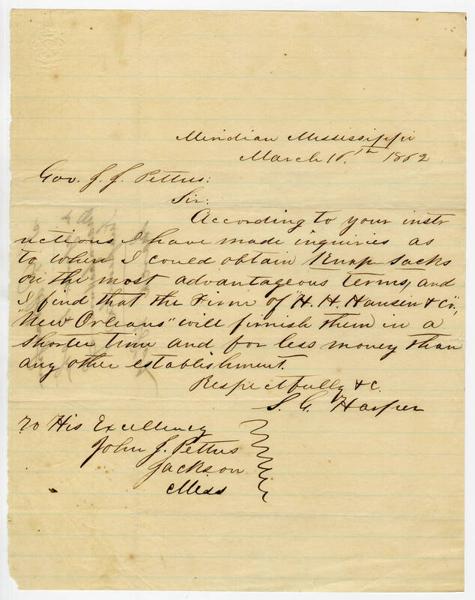 Meridian Mississippi
March 16th 1862
Gov. J. J. Pettus:
Sir:
According to your instr
uctions I have made inquiries as
to when I could obtain Knap sacks
on the most advantageous terms, and
I find that the Firm of "H. H. Hansen & Co",
"New Orleans" will firnish them in a
shorter time and for less money than
any other establishment.
Respectfully &c.
S. G. Harper
To His Excellency
John J. Pettus
Jackson
Miss